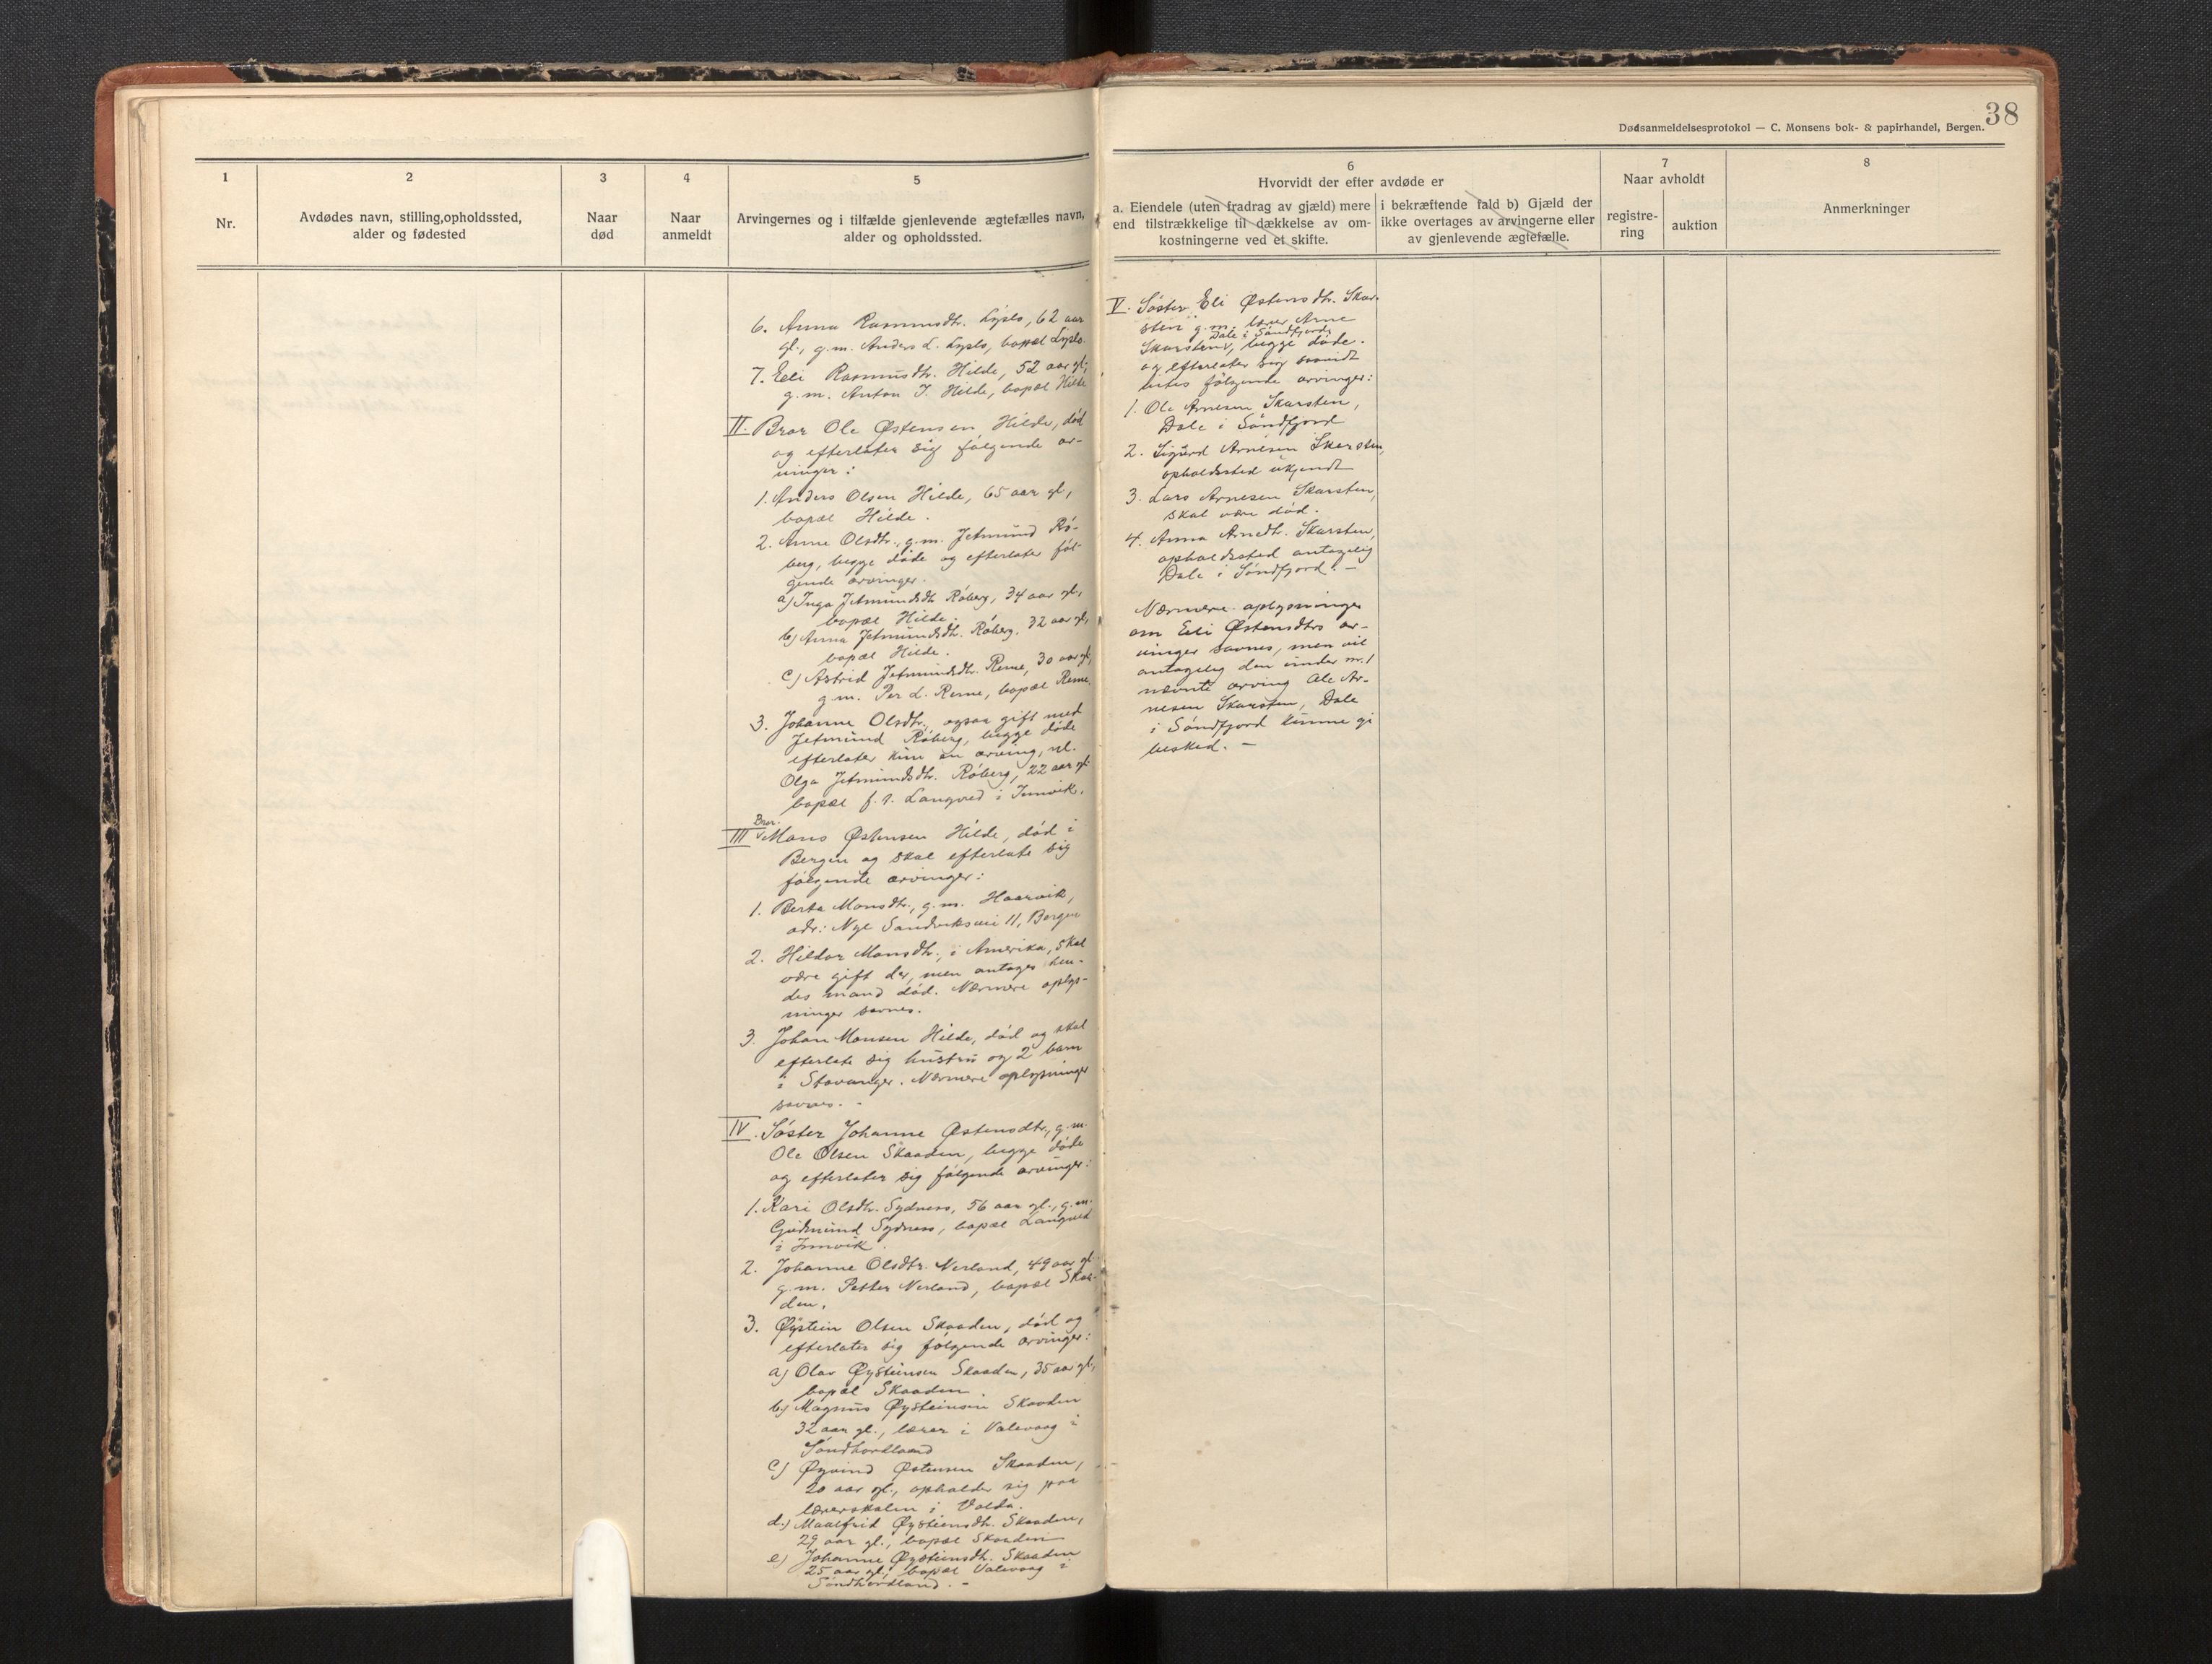 1
Nr.
2
Avdødes navn, stilling,opholdssted,
alder og fødested
3
Naar
død
4
Naar
anmeldt
5
Arvingernes og i tilfælde gjenlevende ægtefælles navn,
alder og opholdssted.
6. Anna Rasmusdtr. Lyslo, 62 aar
gl., g.m. Anders L. Lyslo, bopæl Lyslo.
7. Eli Rasmusdtr. Hilde, 52 aar gl.,
g.m. Anton J. Hilde, bopæl Hilde
II. Bror Ole Østensen Hilde, død
og efterlater sig følgende ar-
vinger:
1. Anders Olsen Hilde, 65 aar gl,
bopæl Hilde.
2. Anne Olsdtr., g.m. Jetmund Rø-
berg, begge døde og efterlater føl-
gende arvinger.
a) Inga Jetmundsdtr Røberg, 34 aar gl.,
bopæl Hilde.
b) Anna Jetmundsdtr. Røberg, 32 aar gl,
bopæl Hilde.
c) Astrid Jetmundsdtr. Reme, 30 aar gl,
g.m. Per L. Reme, bopæl Reme.
3. Johanne Olsdtr., ogsaa gift med
Jetmund Røberg, begge døde
efterlater kun en arving, nl.
Olga Jetmundsdtr. Røberg, 22 aar gl.
bopæl f.t. Langved i Innvik.
Bror.
III Mons Østensen Hilde, død i
Bergen og skal efterlate sig
følgende arvinger:
1. Berta Monsdtr., g.m. Haarvik,
adr: Nye Sandviksvei 11, Bergen
2. Hildar Monsdtr., i Amerika, skal
være gift der, men antages hen-
des mand død. Nærmere oplys-
ninger savnes.
3. Johan Monsen Hilde, død og skal
efterlate sig hustru og 2 barn
i Stavanger. Nærmere oplysninger
savnes. -
IV. Søster Johanne Østensdtr., g.m.
Ole Olsen Skaaden, begge døde
og efterlater sig følgende arvinger:
1. Kari Olsdtr. Sydness, 56 aar gl., g.m.
Gudmund Sydness, bopæl Langved
i Innvik.
2. Johanne Olsdtr. Nerland, 49 aar gl.
g.m. Petter Nerland, bopæl Skaa-
den.
3. Øystein Olsen Skaaden, død og
efterlater sig følgende arvinger:
a) Olav Øysteinsen Skaaden, 35 aar gl,
bopæl Skaaden
b) Magnus Øysteinsen Skaaden
32 aar gl., lærer i Valevaag i
Søndhordland
c) Øyvind Østensen Skaaden,
20 aar gl., opholder sig paa
lærerskolen i Volda.
d.) Maalfrid Øysteinsdtr. Skaaden,
29 aar gl., bopæl Skaaden
e) Johanne Øysteinsdtr. Skaaden
25 aar gl, bopæl Valevaag i
Søndhordland. -
38
Dødsanmeldelsesprotokol — C. Monsens bok- & papirhandel, Bergen.
6
Hvorvidt der efter avdøde er
a. Eiendele (uten fradrag av gjæld) mere
end tilstrækkelige til dækkelse av om-
kostningerne ved et skifte.
i bekræftende fald b) Gjæld der
ikke overtages av arvingerne eller
av gjenlevende ægtefælle.
7
Naar avholdt
registre-
ring
auktion
8
Anmerkninger
V. Søster Eli Østensdtr. Skar-
sten g.m. lærer Arne
Dale i Søndfjord
Skarsten, begge døde.
og efterlater sig saavidt
vites følgende arvinger:
1. Ole Arnesen Skarsten,
Dale i Søndfjord
2. Sigurd Arnesen Skarsten,
opholdssted ukjendt
3. Lars Arnesen Skarsten,
skal være død.
4. Anna Arnedtr. Skarsten,
opholdssted antagelig
Dale i Søndfjord. -
Nærmere oplysninger
om Eli Østensdtrs ar-
vinger savnes, men vil
antagelig den under nr. 1
nævnte arving Ole Ar-
nesen Skarsten, Dale
i Søndfjord kunne gi
besked. -